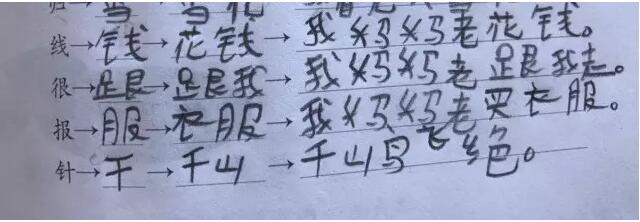 归→当→当花→
线→钱→花钱→我妈妈老花钱。
很→跟→跟我→我妈妈老跟我走。
报→服→衣服→我妈妈老买衣服。
针→千→千山→千山鸟飞绝。